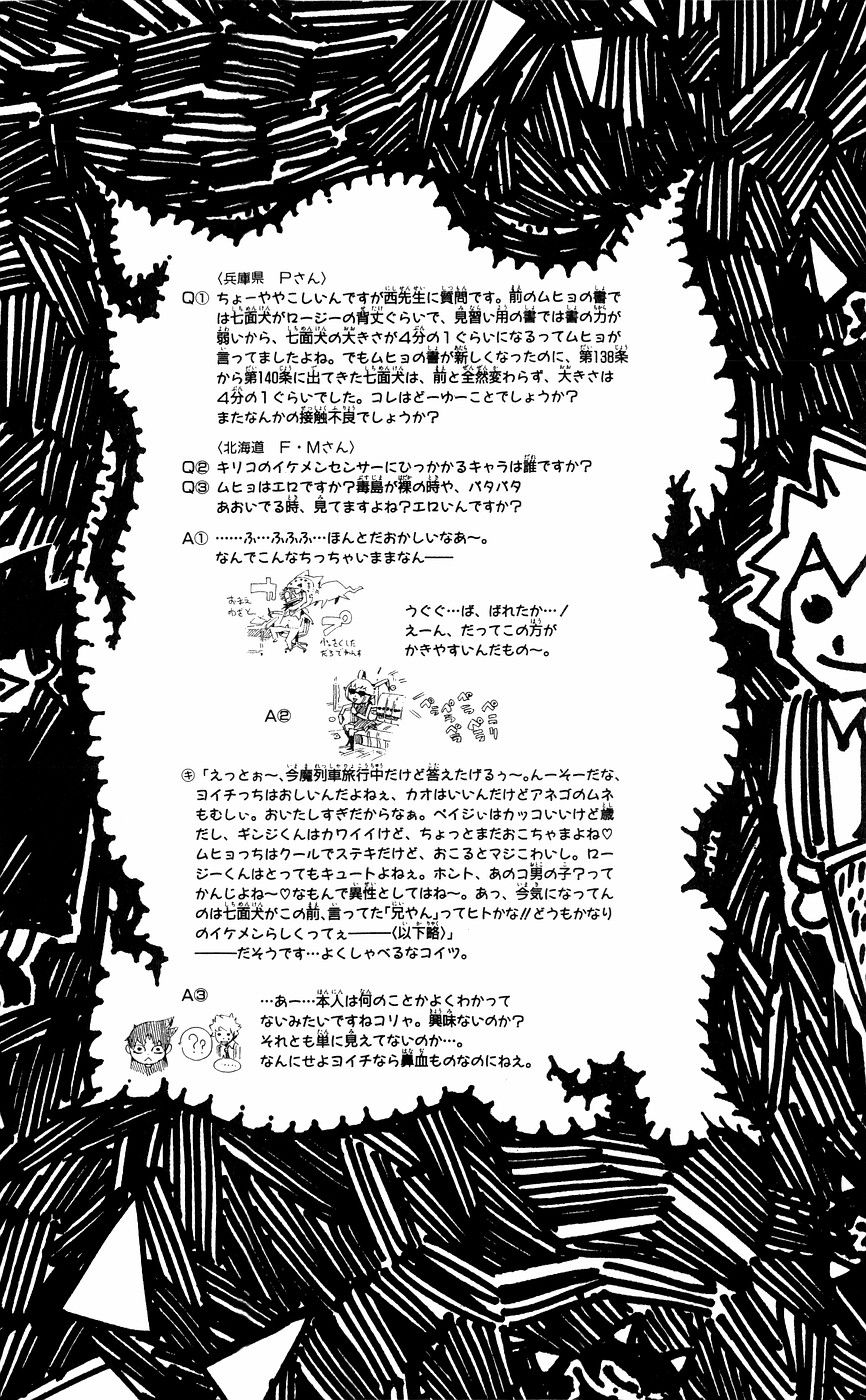 〈兵庫県　Pさん〉
Q① ちょーややこしいんですが西先生に質問です。前のムヒョの書で
は七面犬がロージーの背丈ぐらいで、見習い用の書では書の力が
弱いから、七面犬の大きさが4分の1ぐらいになるってムヒョが
言ってましたよね。でもムヒョの書が新しくなったのに、第138条
から第140条に出てきた七面犬は、前と全然変わらず、大きさは
4分の1ぐらいでした。コレはどーゆーことでしょうか?
またなんかの接触不良でしょうか?
〈北海道　F・Mさん〉
Q② キリコのイケメンセンサーにひっかかるキャラは誰ですか?
Q③ ムヒョはエロですか?毒島が裸の時や、パタパタ
あおいでる時、見てますよね?エロいんですか?
A① ……ふ…ふふふ…ほんとだおかしいなあ〜。
なんでこんなちっちゃいままなん――
おまえ
わざと
小さくした
だろてめえ
うぐぐ…ば、ばれたか…!
えーん、だってこの方が
かきやすいんだもの〜。
A②
ペラペラ
ペラペラ
㋖「えっとぉ〜、今魔列車旅行中だけど答えたげるぅ〜。んーそーだな、
ヨイチっちはおしいんだよねぇ、カオはいいんだけどアネゴのムネ
もむしぃ。おいたしすぎだからなぁ。ペイジぃはカッコいいけど歳
だし、ギンジくんはカワイイけど、ちょっとまだおこちゃまよね♡
ムヒョっちはクールでステキだけど、おこるとマジこわいし。ロー
ジーくんはとってもキュートよねぇ。ホント、あのコ男の子?って
かんじよね〜♡なもんで異性としてはね〜。あっ、今気になってん
のは七面犬がこの前、言ってた「兄やん」ってヒトかな!!どうもかなり
のイケメンらしくってぇ―――〈以下略〉」
―――だそうです…よくしゃべるなコイツ。
A③ …あー…本人は何のことかよくわかって
ないみたいですねコリャ。興味ないのか?
それとも単に見えてないのか…。
なんにせよヨイチなら鼻血ものなのにねえ。
??
…